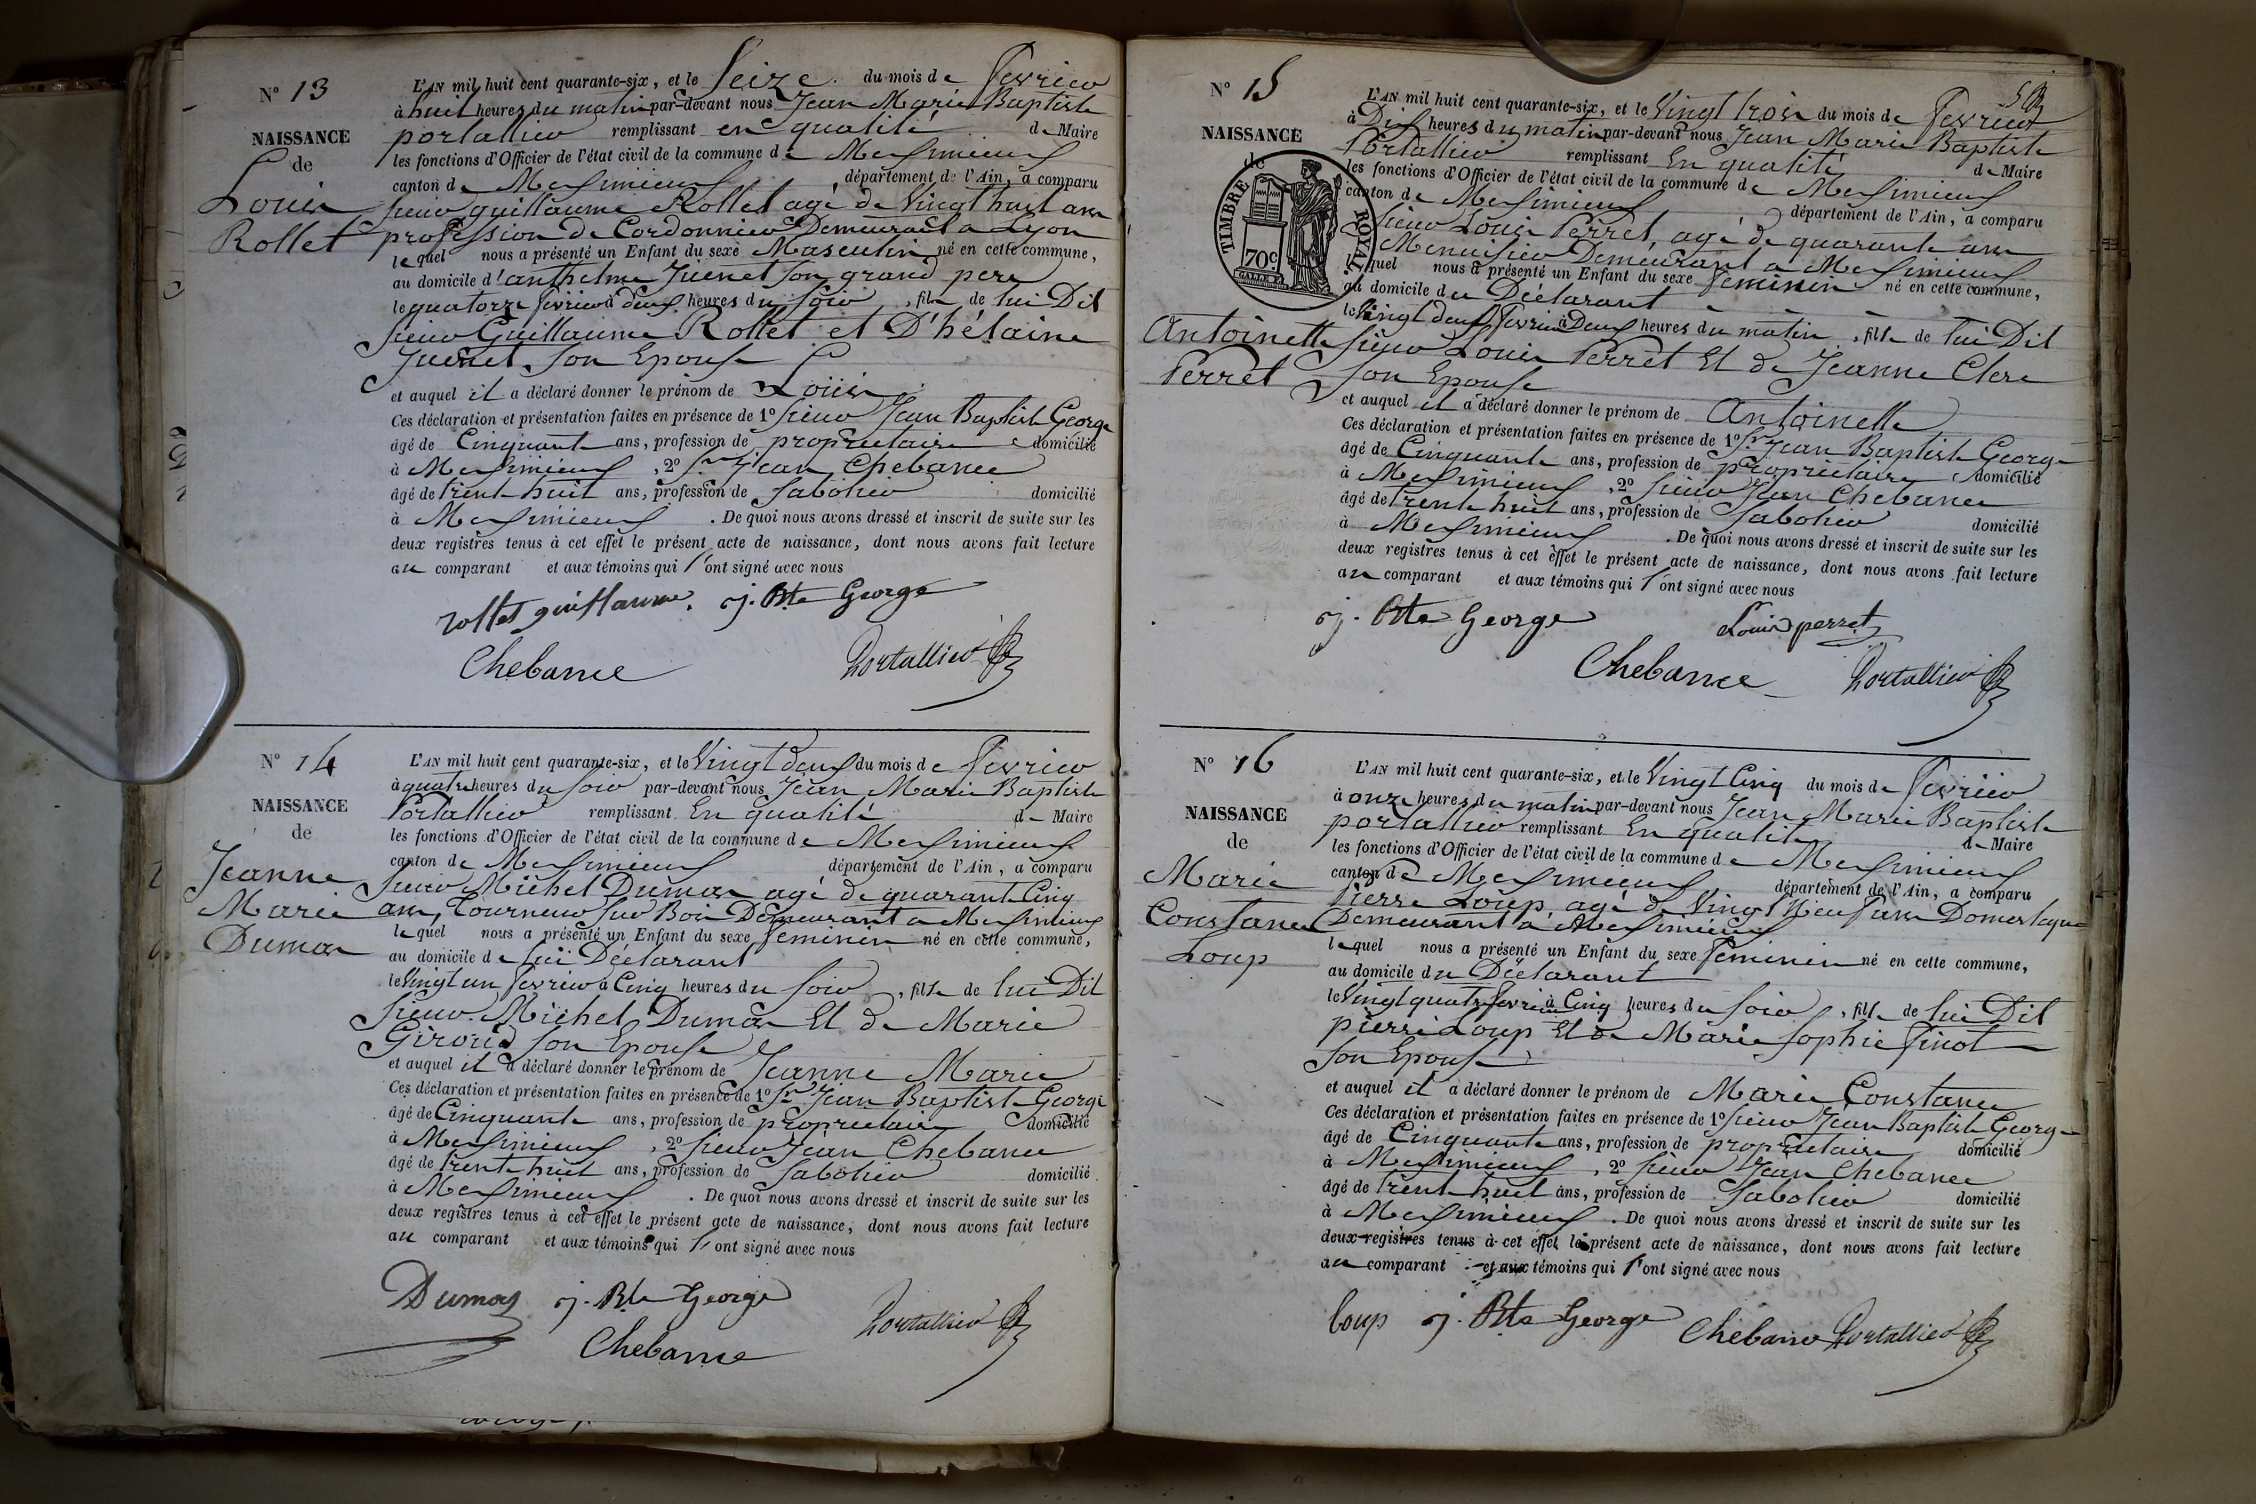 N° 13
NAISSANCE
de
Louis
Rollet
L'AN mil huit cent quarante-six, et le Seize du mois de fevrier
à huit heures du matin par-devant nous Jean Marie Baptiste
portallier remplissant en qualité de Maire
les fonctions d'Officier de l'état civil de la commune de Meximieux
canton de Meximieux département de l'Ain, a comparu
sieur guillaume Rollet agé de vingt huit ans
profession de Cordonnier Demeurant a Lyon
lequel nous a présenté un Enfant du sexe Masculin né en cette commune,
au domicile d'anthelme Juenet son grand pere
le quatorze fevrier à deux heures du soir, fils de lui Dit
sieur Guillaume Rollet et D'hélaine
Juenet son Epouse
et auquel il a déclaré donner le prénom de Louis
Ces déclaration et présentation faites en présence de 1° sieur Jean Baptiste George
âgé de Cinquante ans, profession de propriétaire domicilié
à Meximieux, 2° sr Jean Chebance
âgé de trente huit ans, profession de Sabotier domicilié
à Meximieux. De quoi nous avons dressé et inscrit de suite sur les
deux registres tenus à cet effet le présent acte de naissance, dont nous avons fait lecture
au comparant et aux témoins qui l'ont signé avec nous
rollet guillaume. j. Bte George
Chebance Portallier
N° 14
NAISSANCE
de
Jeanne
Marie
Dumas
L'AN mil huit cent quarante-six, et le Vingt deux du mois de fevrier
à quatre heures du soir par-devant nous Jean Marie Baptiste
Portallier remplissant En qualité de Maire
les fonctions d'Officier de l'état civil de la commune de Meximieux
canton de Meximieux département de l'Ain, a comparu
sieur Michel Dumas agé de quarante Cinq
ans, Tourneur sur Bois Demeurant a Meximieux
lequel nous a présenté un Enfant du sexe feminin né en cette commune,
au domicile de lui Déclarant
le Vingt un fevrier à Cinq heures du soir, fille de lui Dit
sieur Michel Dumas Et de Marie
Giroud son Epouse
et auquel il a déclaré donner le prénom de Jeanne Marie
Ces déclaration et présentation faites en présence de 1° Sr Jean Baptiste George
âgé de Cinquante ans, profession de propriétaire domicilié
à Meximieux, 2° sieur Jean Chebance
âgé de trente huit ans, profession de Sabotier domicilié
à Meximieux. De quoi nous avons dressé et inscrit de suite sur les
deux registres tenus à cet effet le présent acte de naissance, dont nous avons fait lecture
au comparant et aux témoins qui l'ont signé avec nous
Dumas j. Bte George
Chebance Portallier
N° 15
NAISSANCE
de
TIMBRE ROYAL
70c
Antoinette
Perret
L'AN mil huit cent quarante-six, et le Vingt trois du mois de fevrier
à Dix heures du matin par-devant nous Jean Marie Baptiste
Portallier remplissant En qualité de Maire
les fonctions d'Officier de l'état civil de la commune de Meximieux
canton de Meximieux département de l'Ain, a comparu
sieur Louis Perret, agé de quarante ans
Menuisier Demeurant a Meximieux
lequel nous a présenté un Enfant du sexe feminin né en cette commune,
au domicile du Déclarant
le Vingt deux fevrier à Deux heures du matin, fille de lui Dit
sieur Louis Perret Et de Jeanne Clerc
son Epouse
et auquel il a déclaré donner le prénom de Antoinette
Ces déclaration et présentation faites en présence de 1° Sr Jean Baptiste George
âgé de Cinquante ans, profession de propriétaire domicilié
à Meximieux, 2° sieur Jean Chebance
âgé de trente huit ans, profession de Sabotier domicilié
à Meximieux. De quoi nous avons dressé et inscrit de suite sur les
deux registres tenus à cet effet le présent acte de naissance, dont nous avons fait lecture
au comparant et aux témoins qui l'ont signé avec nous
j. Bte George Louis perret
Chebance Portallier
N° 16
NAISSANCE
de
Marie
Constance
Loup
L'AN mil huit cent quarante-six, et le Vingt Cinq du mois de fevrier
à onze heures du matin par-devant nous Jean Marie Baptiste
portallier remplissant En qualité de Maire
les fonctions d'Officier de l'état civil de la commune de Meximieux
canton de Meximieux département de l'Ain, a comparu
Pierre Loup, agé de Vingt Neuf ans Domestique
Demeurant a Meximieux
lequel nous a présenté un Enfant du sexe feminin né en cette commune,
au domicile du Déclarant
le Vingt quatre fevrier à Cinq heures du soir, fille de lui Dit
pierre Loup Et de Marie Sophie finot
son Epouse
et auquel il a déclaré donner le prénom de Marie Constance
Ces déclaration et présentation faites en présence de 1° sieur Jean Baptiste George
âgé de Cinquante ans, profession de propriétaire domicilié
à Meximieux, 2° sieur Jean Chebance
âgé de trente huit ans, profession de Sabotier domicilié
à Meximieux. De quoi nous avons dressé et inscrit de suite sur les
deux registres tenus à cet effet le présent acte de naissance, dont nous avons fait lecture
au comparant et aux témoins qui l'ont signé avec nous
loup j. Bte George Chebance Portallier